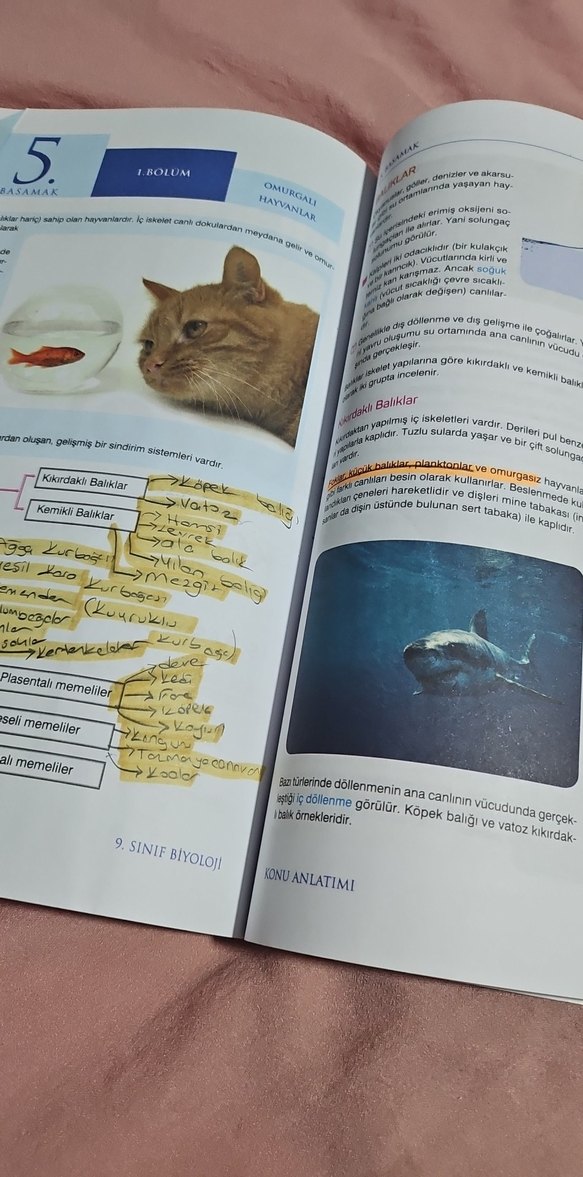 5.
BASAMAK
1.BÖLÜM
OMURGALI
HAYVANLAR
hariç) sahip olan hayvanlardır. İç iskelet canlı dokulardan meydana gelir ve omur-
larak
oluşan, gelişmiş bir sindirim sistemleri vardır.
Kıkırdaklı Balıklar
Köpek balığı
Vatoz
Kemikli Balıklar
Hamsi
Levrek
Ala balık
Yılan balığı
Mezgit
Ağaç kurbağası
kara kurbağası
(kuyruklu
kurbağa)
kertenkeleler
Plasentalı memeliler
deve
kedi
Fare
Köpek
Koyun
eseli memeliler
Kanguru
Tazmanya canavarı
alı memeliler
Koala
9. SINIF BİYOLOJİ
BASAMAK
göller, denizler ve akarsu-
su ortamlarında yaşayan hay-
içerisindeki erimiş oksijeni so-
ile alırlar. Yani solungaç
solunumu görülür.
Kalpleri iki odacıklıdır (bir kulakçık
ve bir karıncık). Vücutlarında kirli ve
temiz kan karışmaz. Ancak soğuk
(vücut sıcaklığı çevre sıcaklı-
ğına bağlı olarak değişen) canlılar-
Genellikle dış döllenme ve dış gelişme ile çoğalırlar.
yavru oluşumu su ortamında ana canlının vücudu
gerçekleşir.
Balıklar iskelet yapılarına göre kıkırdaklı ve kemikli balık
olarak iki grupta incelenir.
Kıkırdaklı Balıklar
Kıkırdaktan yapılmış iç iskeletleri vardır. Derileri pul benze
yapılarla kaplıdır. Tuzlu sularda yaşar ve bir çift solungaç
vardır.
Foklar, küçük balıklar, planktonlar ve omurgasız hayvanla
gibi farklı canlıları besin olarak kullanırlar. Beslenmede kul
landıkları çeneleri hareketlidir ve dişleri mine tabakası (in
sanlar da dişin üstünde bulunan sert tabaka) ile kaplıdır.
Bazı türlerinde döllenmenin ana canlının vücudunda gerçek-
leştiği iç döllenme görülür. Köpek balığı ve vatoz kıkırdak-
lı balık örnekleridir.
KONU ANLATIMI